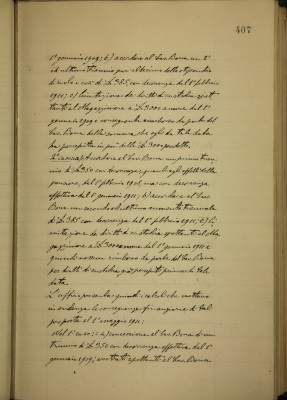 407
1° gennaio 1909; b) accordare al Sac. Bona un 2°
ed ultimo triennio per decimo dello stipendio
di £ 385 con decorrenza dal 1° febbraio
1911; c) limitazione dei diritti di custodia
al Magazziniere a £ 300 annue dal 1°
gennaio 1909 e conseguente rimborso da parte del
Sac. Bona della somma che egli da tale data
ha percepito in più delle £ 300 predette.
2° caso: a) Accordare al Sac. Bona un primo trien-
nio di £ 350 con decorrenza, quanto agli effetti della
pensione, dal 1° febbraio 1908, ma con decorrenza
effettiva dal 1° gennaio 1911; b) accordare al Sac.
Bona un secondo ed ultimo aumento triennale
di £ 385 con decorrenza dal 1° febbraio 1911; c) li-
mitazione dei diritti di custodia spettanti al Ma-
gazziniere a £ 300 annue dal 1° gennaio 1911 e
quindi nessun rimborso da parte del Sac. Bona
per diritti di custodia già percepiti prima di tale
data.
L'ufficio presenta quindi i calcoli che mettono
in evidenza le conseguenze finanziarie di tali
proposte al 1° maggio 1911:
Nel 1° caso: a) concessione al Sac. Bona di un
triennio di £ 350 con decorrenza effettiva dal 1°
gennaio 1909; spettanti al Sac. Bona